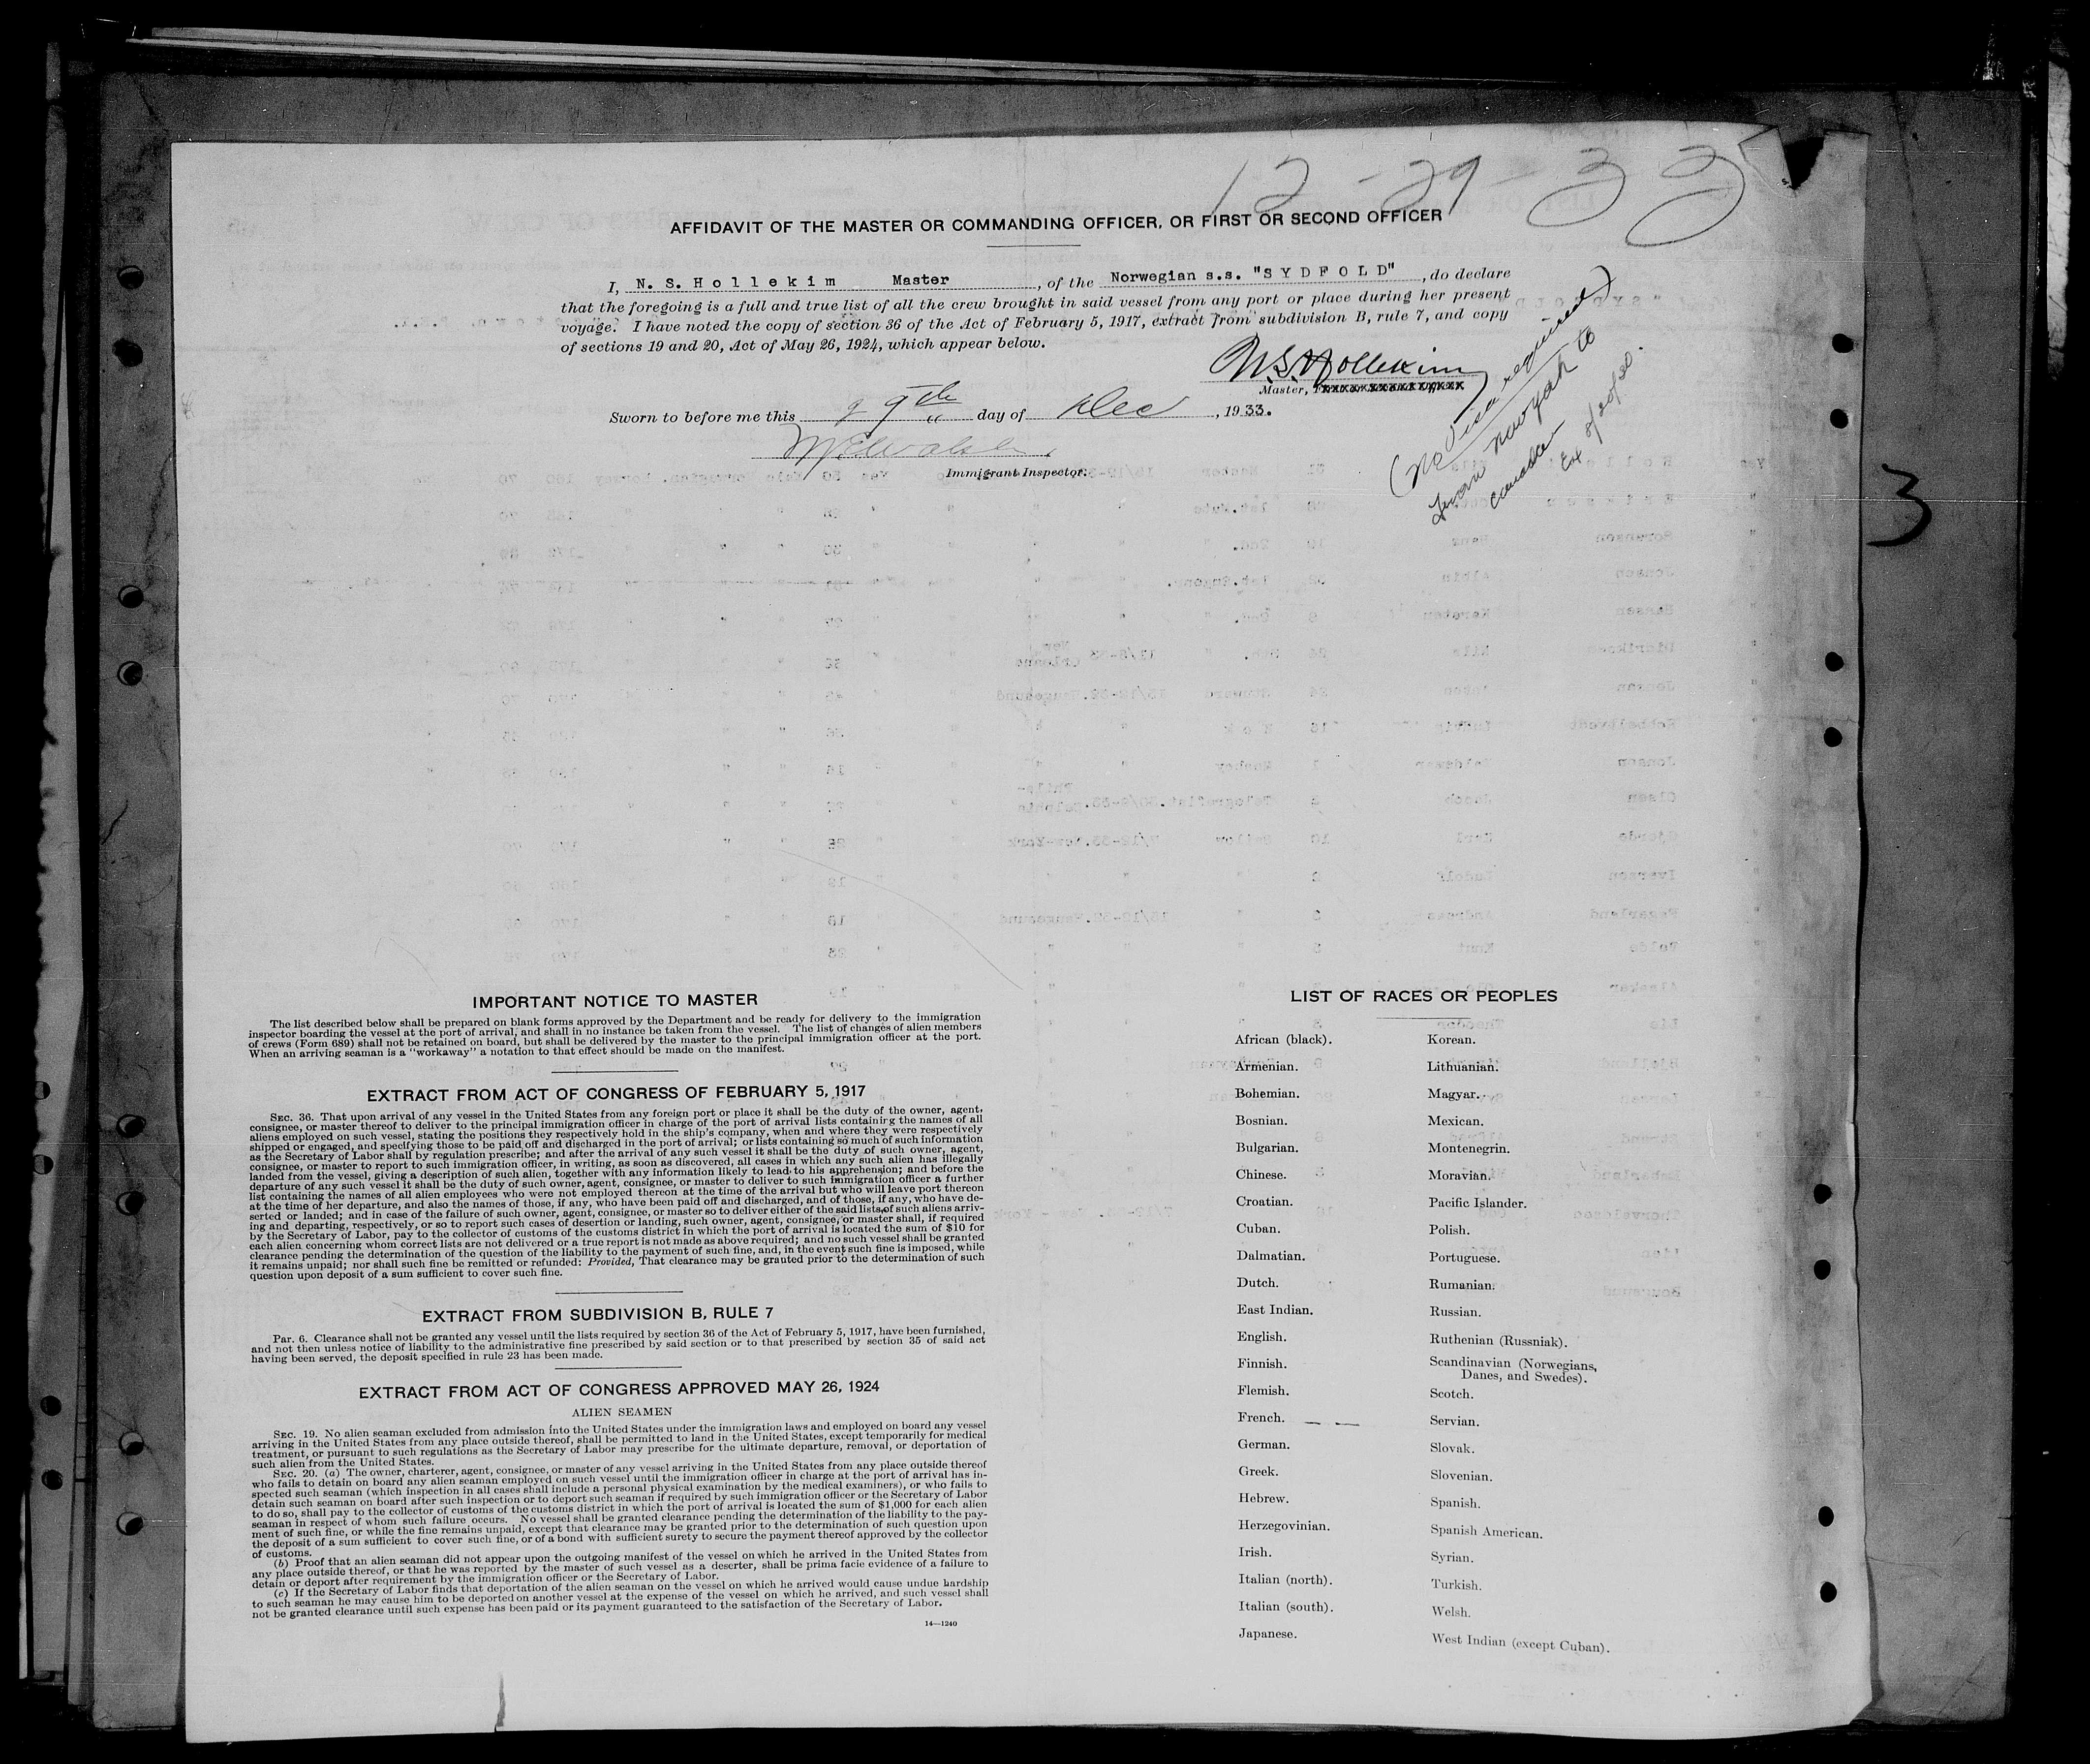 12-29-33
AFFIDAVIT OF THE MASTER OR COMMANDING OFFICER, OR FIRST OR SECOND OFFICER
I, N. S. Hollekim Master, of the Norwegian s.s. "SYDFOLD", do declare
that the foregoing is a full and true list of all the crew brought in said vessel from any port or place during her present
voyage. I have noted the copy of section 36 of the Act of February 5, 1917, extract from subdivision B, rule 7, and copy
of sections 19 and 20, Act of May 26, 1924, which appear below.
N.S. Hollekim
Master,
Sworn to before me this 29th day of Dec, 1933.
Immigrant Inspector.
(No visa required)
from to
3
IMPORTANT NOTICE TO MASTER
The list described below shall be prepared on blank forms approved by the Department and be ready for delivery to the immigration
inspector boarding the vessel at the port of arrival, and shall in no instance be taken from the vessel. The list of changes of alien members
of crews (Form 689) shall not be retained on board, but shall be delivered by the master to the principal immigration officer at the port.
When an arriving seaman is a "workaway" a notation to that effect should be made on the manifest.
EXTRACT FROM ACT OF CONGRESS OF FEBRUARY 5, 1917
SEC. 36. That upon arrival of any vessel in the United States from any foreign port or place it shall be the duty of the owner, agent,
consignee, or master thereof to deliver to the principal immigration officer in charge of the port of arrival lists containing the names of all
aliens employed on such vessel, stating the positions they respectively hold in the ship's company, when and where they were respectively
shipped or engaged, and specifying those to be paid off and discharged in the port of arrival; or lists containing so much of such information
as the Secretary of Labor shall by regulation prescribe; and after the arrival of any such vessel it shall be the duty of such owner, agent,
consignee, or master to report to such immigration officer, in writing, as soon as discovered, all cases in which any such alien has illegally
landed from the vessel, giving a description of such alien, together with any information likely to lead to his apprehension; and before the
departure of any such vessel it shall be the duty of such owner, agent, consignee, or master to deliver to such immigration officer a further
list containing the names of all alien employees who were not employed thereon at the time of the arrival but who will leave port thereon
at the time of her departure, and also the names of those, if any, who have been paid off and discharged, and of those, if any, who have de-
serted or landed; and in case of the failure of such owner, agent, consignee, or master so to deliver either of the said lists of such aliens arriv-
ing and departing, respectively, or so to report such cases of desertion or landing, such owner, agent, consignee, or master shall, if required
by the Secretary of Labor, pay to the collector of customs of the customs district in which the port of arrival is located the sum of $10 for
each alien concerning whom correct lists are not delivered or a true report is not made as above required; and no such vessel shall be granted
clearance pending the determination of the question of the liability to the payment of such fine, and, in the event such fine is imposed, while
it remains unpaid; nor shall such fine be remitted or refunded: Provided, That clearance may be granted prior to the determination of such
question upon deposit of a sum sufficient to cover such fine.
EXTRACT FROM SUBDIVISION B, RULE 7
Par. 6. Clearance shall not be granted any vessel until the lists required by section 36 of the Act of February 5, 1917, have been furnished,
and not then unless notice of liability to the administrative fine prescribed by said section or to that prescribed by section 35 of said act
having been served, the deposit specified in rule 23 has been made.
EXTRACT FROM ACT OF CONGRESS APPROVED MAY 26, 1924
ALIEN SEAMEN
SEC. 19. No alien seaman excluded from admission into the United States under the immigration laws and employed on board any vessel
arriving in the United States from any place outside thereof, shall be permitted to land in the United States, except temporarily for medical
treatment, or pursuant to such regulations as the Secretary of Labor may prescribe for the ultimate departure, removal, or deportation of
such alien from the United States.
SEC. 20. (a) The owner, charterer, agent, consignee, or master of any vessel arriving in the United States from any place outside thereof
who fails to detain on board any alien seaman employed on such vessel until the immigration officer in charge at the port of arrival has in-
spected such seaman (which inspection in all cases shall include a personal physical examination by the medical examiners), or who fails to
detain such seaman on board after such inspection or to deport such seaman if required by such immigration officer or the Secretary of Labor
to do so, shall pay to the collector of customs of the customs district in which the port of arrival is located the sum of $1,000 for each alien
seaman in respect of whom such failure occurs. No vessel shall be granted clearance pending the determination of the liability to the pay-
ment of such fine, or while the fine remains unpaid, except that clearance may be granted prior to the determination of such question upon
the deposit of a sum sufficient to cover such fine, or of a bond with sufficient surety to secure the payment thereof approved by the collector
of customs.
(b) Proof that an alien seaman did not appear upon the outgoing manifest of the vessel on which he arrived in the United States from
any place outside thereof, or that he was reported by the master of such vessel as a deserter, shall be prima facie evidence of a failure to
detain or deport after requirement by the immigration officer or the Secretary of Labor.
(c) If the Secretary of Labor finds that deportation of the alien seaman on the vessel on which he arrived would cause undue hardship
to such seaman he may cause him to be deported on another vessel at the expense of the vessel on which he arrived, and such vessel shall
not be granted clearance until such expense has been paid or its payment guaranteed to the satisfaction of the Secretary of Labor.
14—1240
LIST OF RACES OR PEOPLES
African (black).
Armenian.
Bohemian.
Bosnian.
Bulgarian.
Chinese.
Croatian.
Cuban.
Dalmatian.
Dutch.
East Indian.
English.
Finnish.
Flemish.
French.
German.
Greek.
Hebrew.
Herzegovinian.
Irish.
Italian (north).
Italian (south).
Japanese.
Korean.
Lithuanian.
Magyar.
Mexican.
Montenegrin.
Moravian.
Pacific Islander.
Polish.
Portuguese.
Rumanian.
Russian.
Ruthenian (Russniak).
Scandinavian (Norwegians,
Danes, and Swedes).
Scotch.
Servian.
Slovak.
Slovenian.
Spanish.
Spanish American.
Syrian.
Turkish.
Welsh.
West Indian (except Cuban).